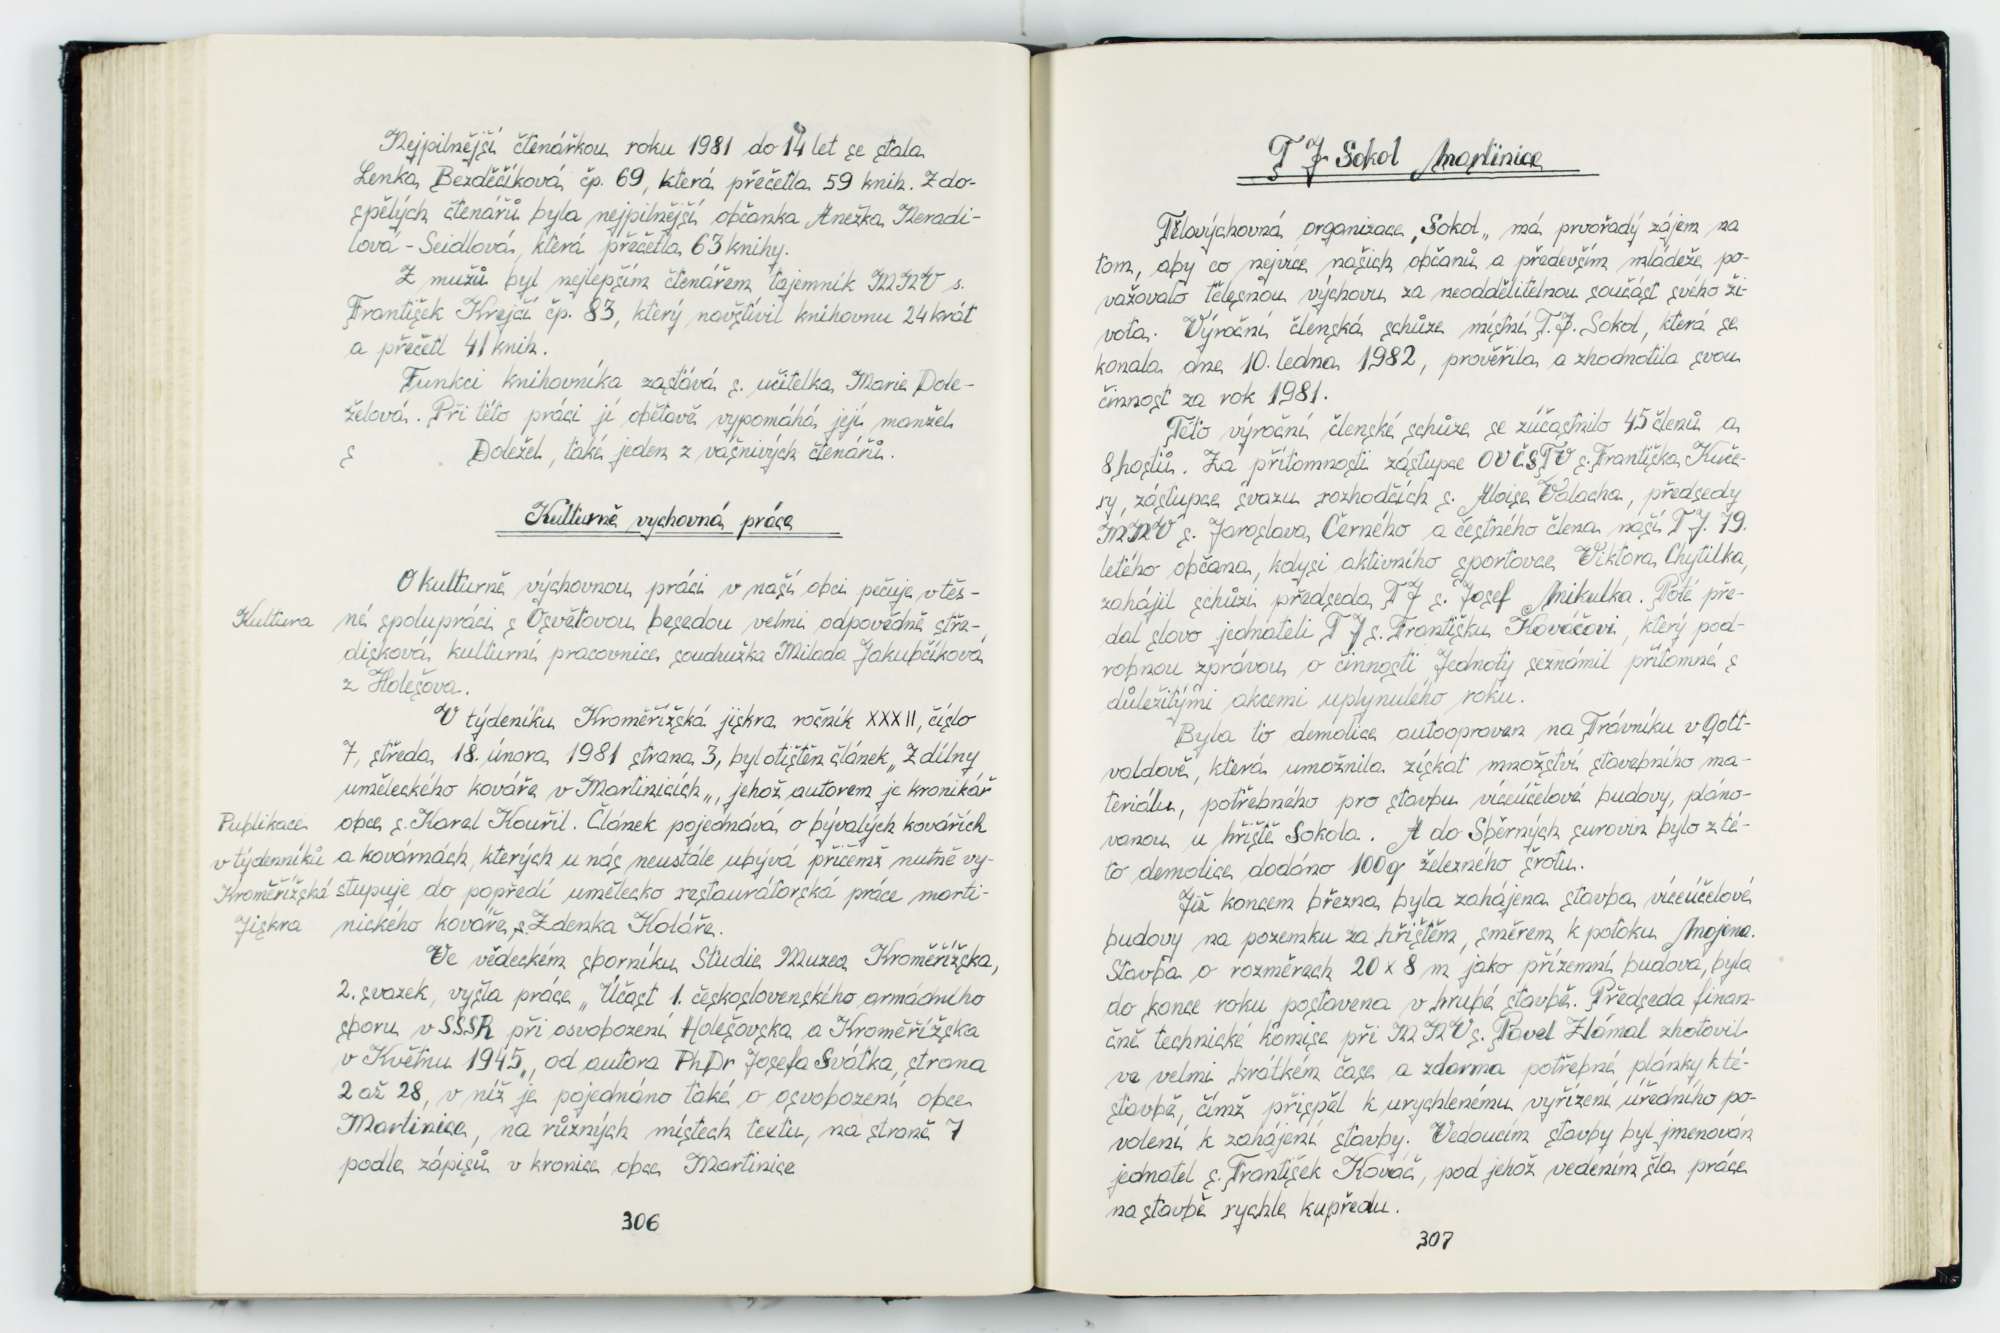 Nejpilnější čtenářkou roku 1981 do 14 let se stala
Lenka Bezděčíková čp. 69, která přečetla 59 knih. Z do-
spělých čtenářů byla nejpilnější občanka Anežka Neradi-
lová - Seidlová, která přečetla 63 knihy.
Z mužů byl nejlepším čtenářem tajemník MNV s.
František Krejčí čp. 83, který navštívil knihovnu 24 krát
a přečetl 41 knih.
Funkci knihovníka zastává s. učitelka Marie Dole-
želová. Při této práci jí obětavě vypomáhá její manžel
s Doležel, také jeden z vášnivých čtenářů.
Kulturně vychovná práce
O kulturně výchovnou práci v naší obci pečuje v těs-
Kultura
né spolupráci s Osvětovou besedou velmi odpovědně stře-
disková kulturní pracovnice soudružka Milada Jakubčíková
z Holešova.
V týdeníku Kroměřížská jiskra ročník XXXII, číslo
7, středa 18. února 1981 strana 3, byl otištěn článek „Z dílny
uměleckého kováře v Martinicích„, jehož autorem je kronikář
Publikace
obce s. Karel Kouřil. Článek pojednává o bývalých kovářích
v týdenníků
a kovárnách, kterých u nás neustále ubývá přičemž nutně vy-
Kroměřížská
stupuje do popředí umělecko restaurátorská práce marti-
Jiskra
nického kováře, s. Zdenka Koláře.
Ve vědeckém sborníku Studie Muzea Kroměřížska,
2. svazek, vyšla práce „Účast 1. československého armádního
sboru v SSSR při osvobození Holešovska a Kroměřížska
v Květnu 1945„, od autora PhDr Josefa Svátka, strana
2 až 28, v níž je pojednáno také o osvobození obce
Martinice, na různých místech textu, na straně 7
podle zápisů v kronice obce Martinice
306
TJ Sokol Martinice
Tělovýchovná organizace „Sokol„ má prvořadý zájem na
tom, aby co nejvíce našich občanů a především mládeže po-
važovalo tělesnou výchovu za neoddělitelnou součást svého ži-
vota. Výroční členská schůze místní T.J. Sokol, která se
konala dne 10. ledna 1982, prověřila a zhodnotila svou
činnost za rok 1981.
Této výroční členské schůze se zúčastnilo 45 členů a
8 hostů. Za přítomnosti zástupce OV ČSTV s. Františka Kuče-
ry, zástupce svazu rozhodčích s. Aloise Valacha, předsedy
MNV s. Jaroslava Černého a čestného člena naší TJ. 79.
letého občana, kdysi aktivního sportovce Viktora Chytilka,
zahájil schůzi předseda TJ s. Josef Mikulka. Poté pře-
dal slovo jednateli TJ s. Františku Kováčovi, který pod-
robnou zprávou o činnosti Jednoty seznámil přítomné s
důležitými akcemi uplynulého roku.
Byla to demolice autoopraven na Trávníku v Gott-
valdově, která umožnila získat množství stavebního ma-
teriálu, potřebného pro stavbu víceúčelové budovy, pláno-
vanou u hřiště Sokola. A do Sběrných surovin bylo z té-
to demolice dodáno 100q železného šrotu.
Již koncem března byla zahájena stavba víceúčelové
budovy na pozemku za hřištěm, směrem k potoku Mojena.
Stavba o rozměrech 20 x 8 m jako přízemní budova, byla
do konce roku postavena v hrubé stavbě. Předseda finan-
čně technické komise při MNV s. Pavel Zlámal zhotovil
ve velmi krátkém čase a zdarma potřebné plánky k té-
stavbě, čímž přispěl k urychlenému vyřízení úředního po-
volení k zahájení stavby. Vedoucím stavby byl jmenován
jednatel s. František Kováč, pod jehož vedením šla práce
na stavbě rychle kupředu.
307